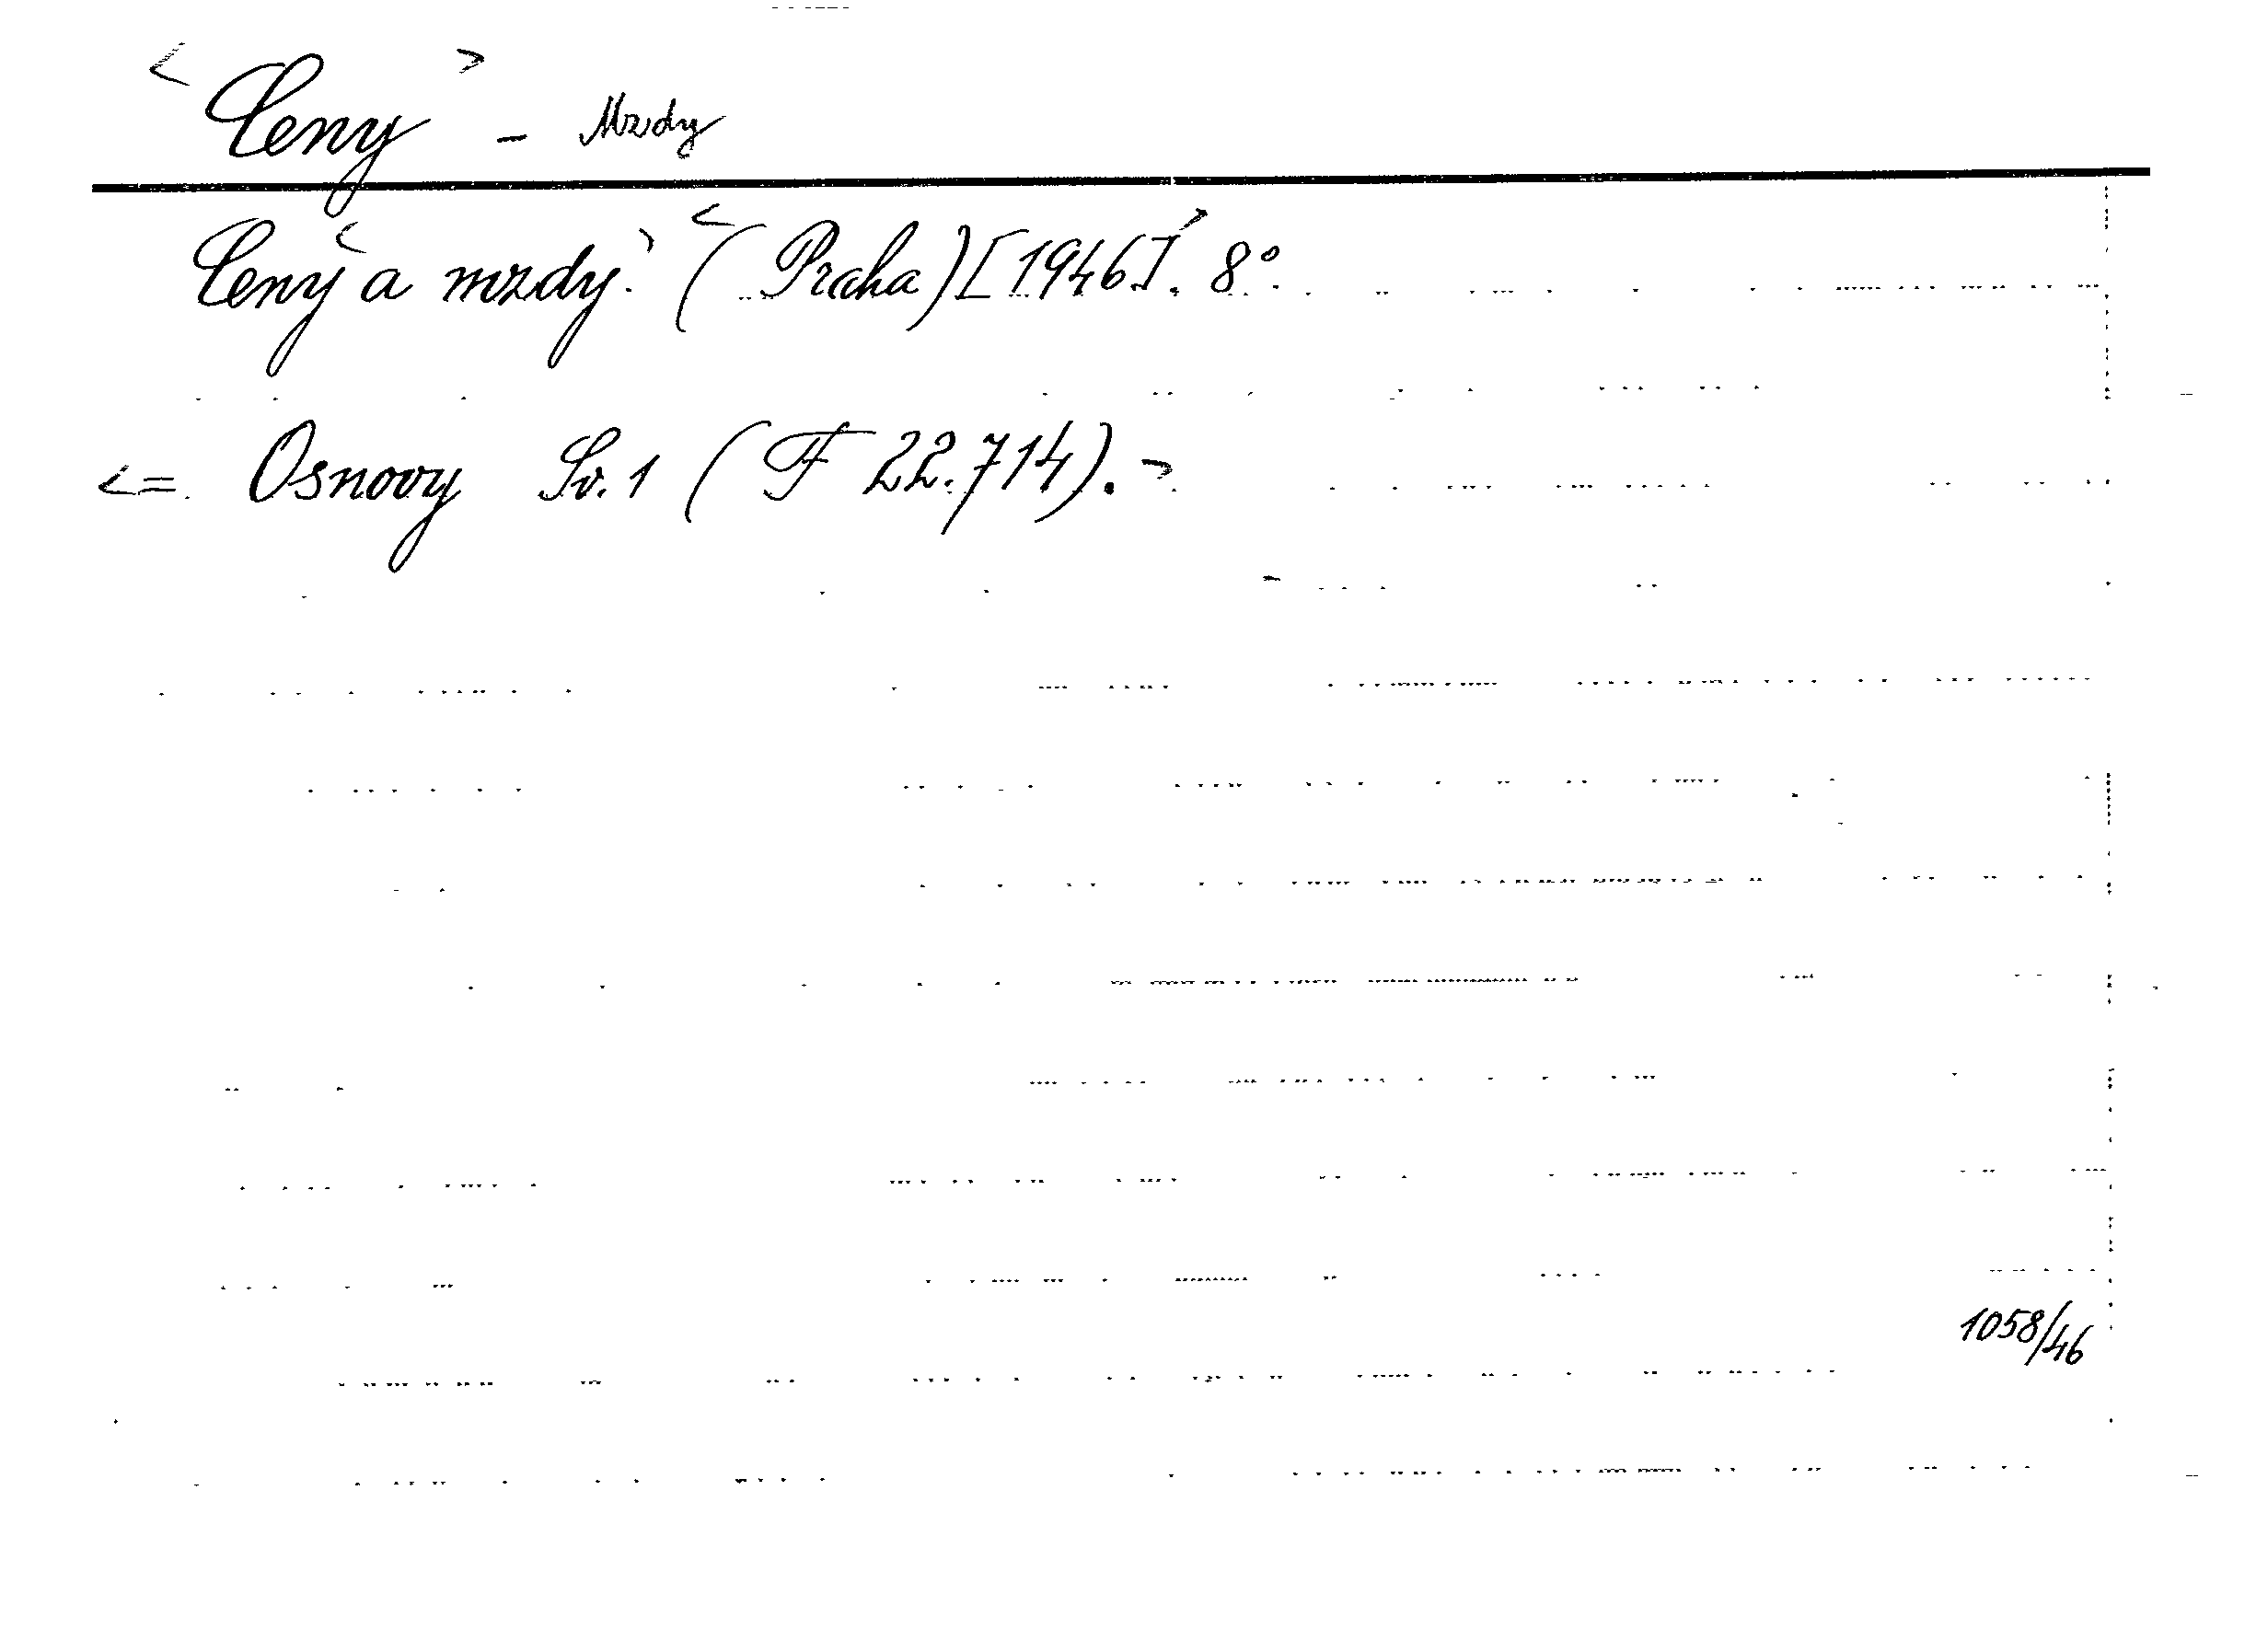 <Ceny> - Mzdy
Ceny <a mzdy.> <(Praha) [1946].> 8°
<= Osnovy Sv. 1 (F 22.714).>
1058/46